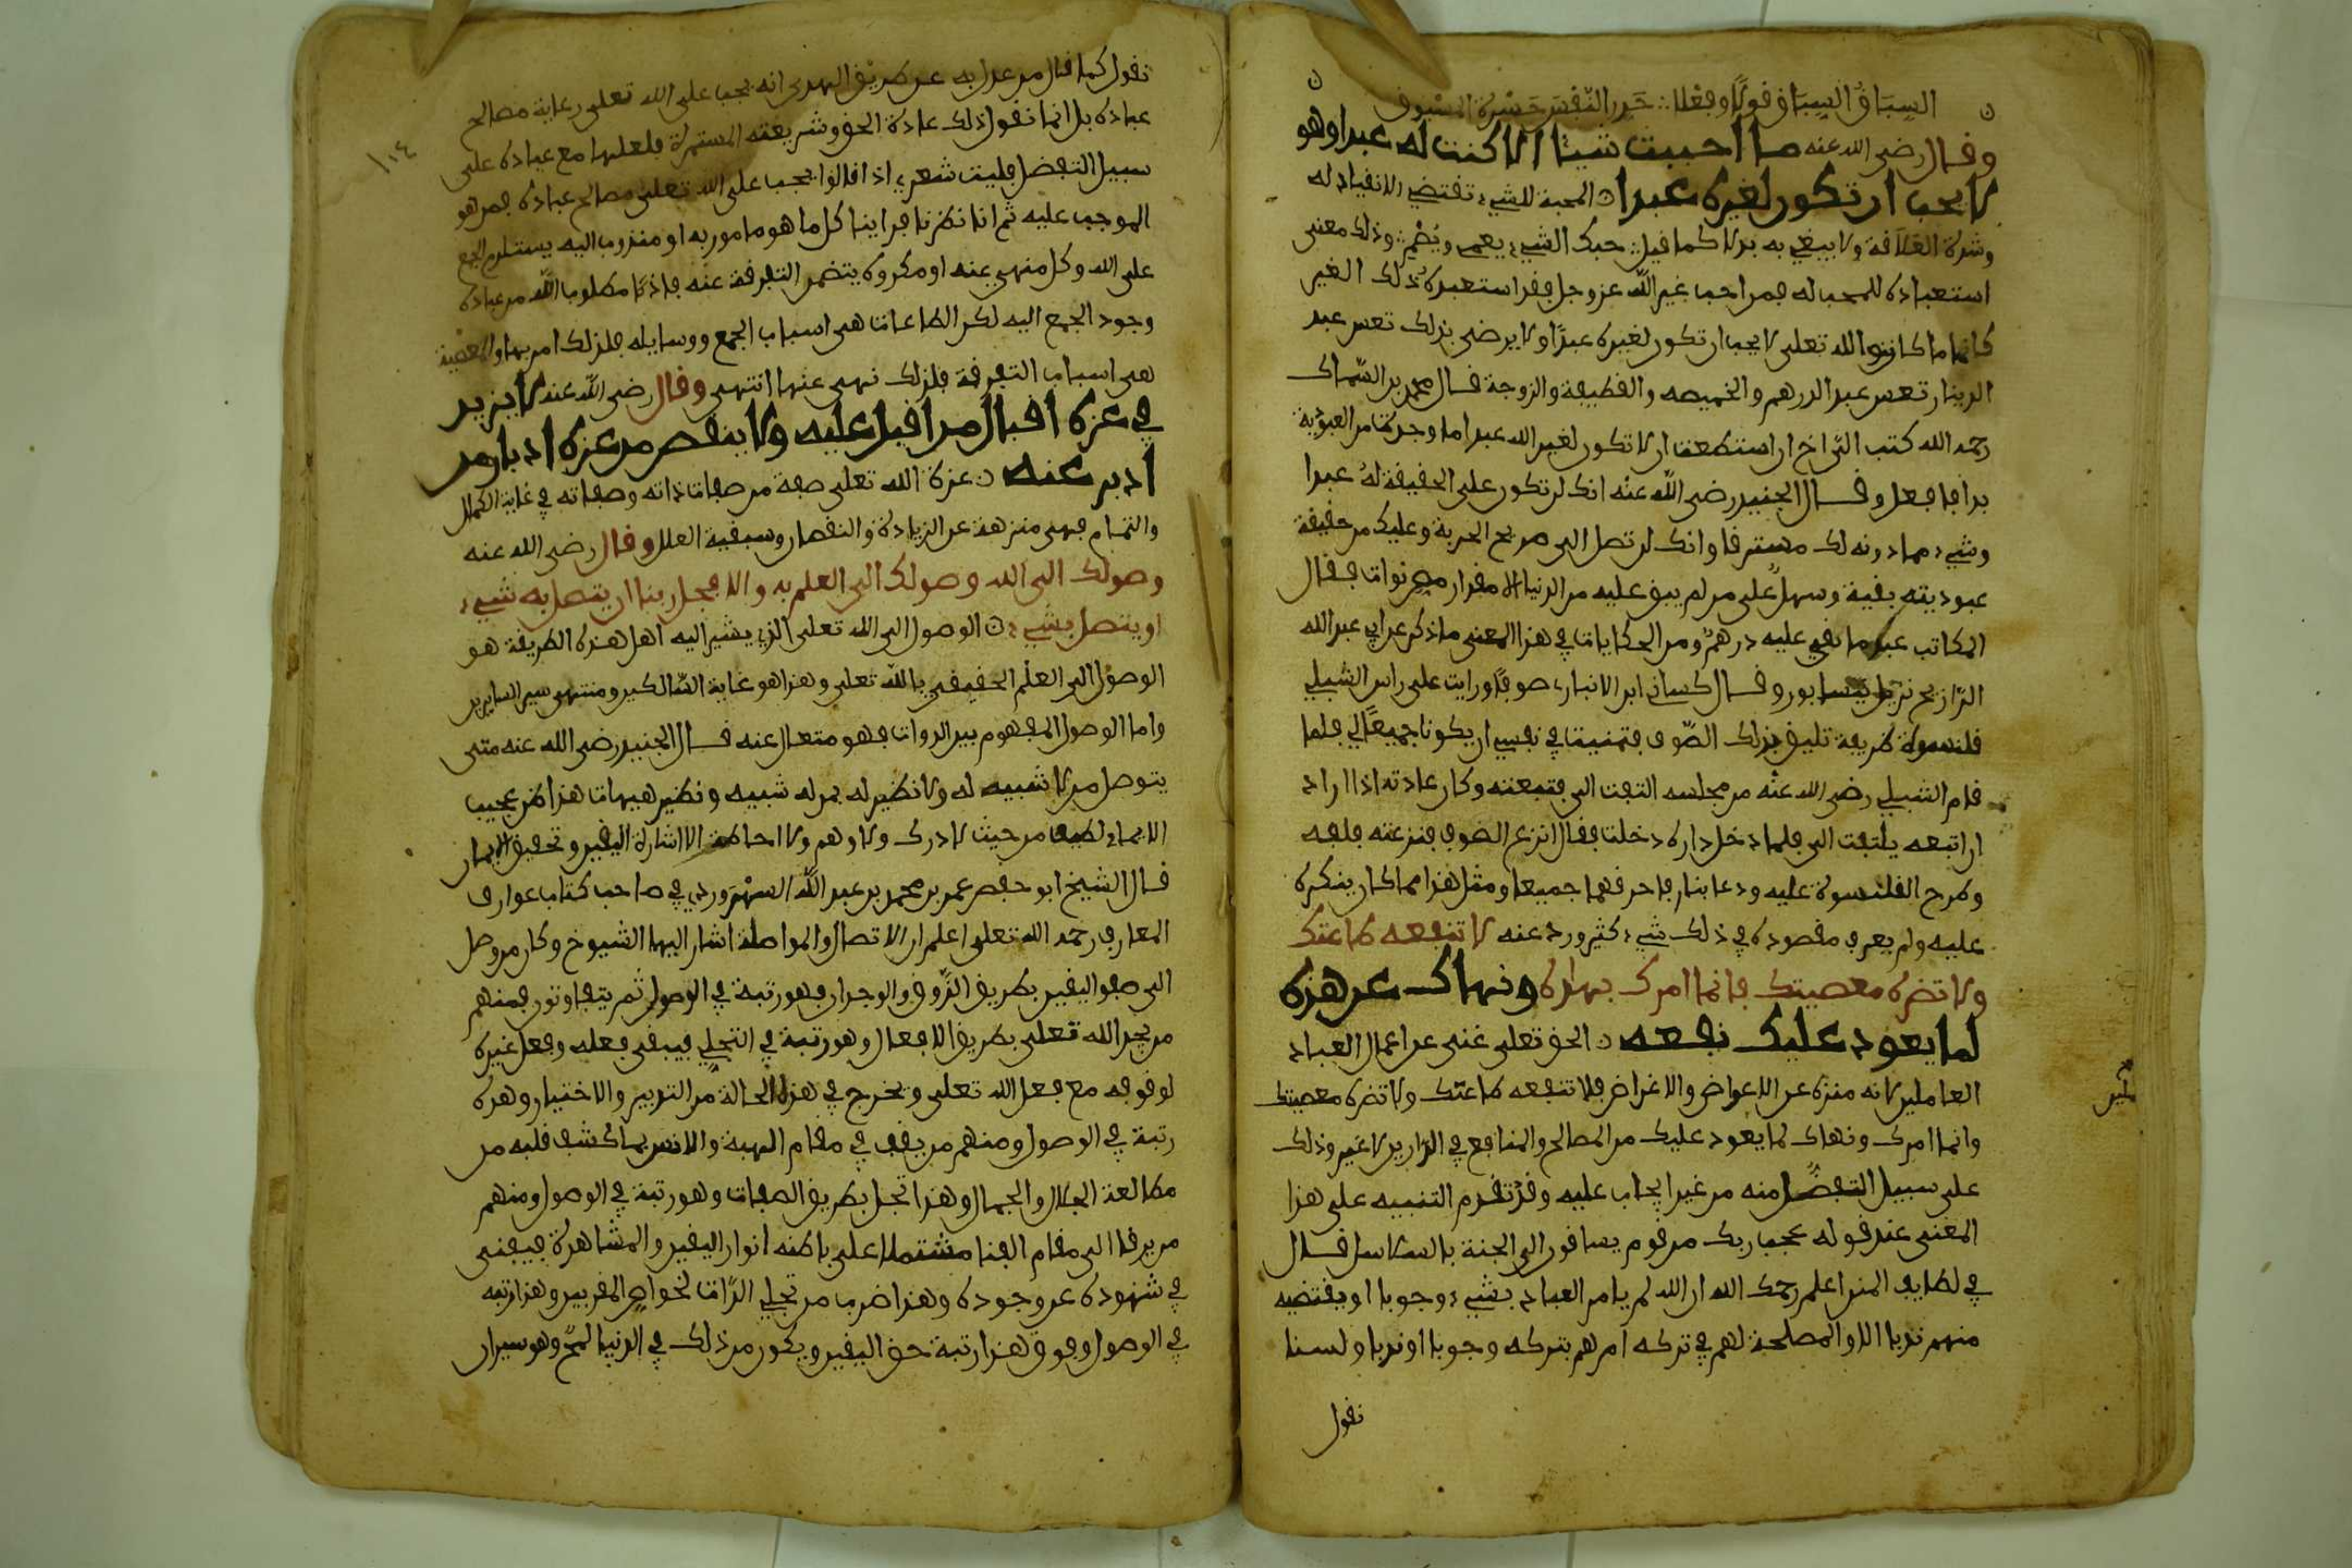 السباق السباق قولا وفعلا ∴ حذر النفس حسرة المسبوق
وقال رضي الله عنه ما احببت شيئا الا كنت له عبدا وهو
لا يحب ان تكون لغيره عبدا ن المحبة للشيء تقتضي الانقياد له
وشدة العلاقة ولا يبغي به بدلا كما قيل ∴ حبك الشيء يعمي ويصم ∴ وذلك معنى
استعباده للمحب له فمن احب غير الله عز وجل فقد استعبده ذلك الغير
كائنا ما كان والله تعلى لا يحب ان تكون لغيره عبدا ولا يرضى بذلك تعس عبد
الدينار تعس عبد الدرهم والخميصه والقطيفة والزوجة قال محمد بن السماك
رحمه الله كتب الي اخ ان استطعت ان لا تكون لغير الله عبدا ما وجدت من العبودية
بدا فافعل وقال الجنيد رضي الله عنه انك لن تكون على الحقيقة له عبدا
وشيء مما دونه لك مسترقا وانك لن تصل الى صريح الحرية وعليك من حقيقة
عبوديته بقية وسهل على من لم يبق عليه من الدنيا الا مقدار مص نوات فقال
المكاتب عبد ما بقي عليه درهم ومن الحكايات في هذا المعنى ما ذكر عن ابي عبد الله
الرازي نزيل نيسابور وقال كساني ابن الانباري صوفا ورايت على راس الشبلي
قلنسوة طريفة تليق بذلك الصوف فتمنيت في نفسي ان يكونا جميعا لي فلما
قام الشبلي رضي الله عنه من مجلسه التفت الي فتبعته وكان عادته اذا اراد
ان اتبعه يلتفت الي فلما دخل داره دخلت فقال انزع الصوف فنزعته فلفه
وطرح القلنسوة عليه ودعا بنار فاحرقهما جميعا ومثل هذا مما كان ينكره
عليه ولم يعرف مقصوده في ذلك شيء كثير ورد عنه لا تنفعه طاعتك
ولا تضره معصيتك فانما امرك بهذه ونهاك عن هذه
لما يعود عليك نفعه ن الحق تعلى غني عن اعمال العباد
العاملين لانه منزه عن الاعواض والاغراض فلا تنفعه طاعتك ولا تضره معصيتك
وانما امرك ونهاك لما يعود عليك من المصالح والمنافع في الدارين لا غير وذلك
على سبيل التفضل منه من غير ايجاب عليه وقد تقدم التنبيه على هذا
المعنى عند قوله عجب ربك من قوم يساقون الى الجنة بالسلاسل قال
في لطايف المنن اعلم رحمك الله ان الله لم يامر العباد بشيء وجوبا او يقتضيه
منهم ندبا الا والمصلحة لهم في تركه امرهم بتركه وجوبا او ندبا ولسنا
نقول
١١٤
نقول كما قال من عدل به عن طريق الهدى انه يجب على الله تعلى رعاية مصالح
عباده بل انما نقول ذلك عادة الحق وشريعته المستمرة فلعلها مع عباده على
سبيل التفضل فليت شعري اذا قالوا يجب على الله تعلى مصالح عباده فمن هو
الموجب عليه ثم انا نظرنا فراينا كل ما هو مامور به او مندوب اليه يستلزم الجمع
على الله وكل منهي عنه او مكروه يتضمن التفرقة عنه فاذا مطلوب الله من عباده
وجود الجمع اليه لكن الطاعات هي اسباب الجمع ووسايله فلذلك امر بها والمعصية
هي اسباب التفرقة فلذلك نهى عنها انتهى وقال رضي الله عنه لا يزيد
في عزه اقبال من اقبل عليه ولا ينقص من عزه ادبار من
ادبر عنه ن عزة الله تعلى صفة من صفات ذاته وصفاته في غاية الكمال
والتمام فهي منزهة عن الزيادة والنقصان وسبقية العلل وقال رضي الله عنه
وصولك الى الله وصولك الى العلم به والا فجل ربنا ان يتصل به شيء
او يتصل بشيء ن الوصول الى الله تعلى الذي يشير اليه اهل هذه الطريقة هو
الوصول الى العلم الحقيقي بالله تعلى وهذا هو غاية السالكين ومنتهى سير السايرين
واما الوصول المفهوم بين الذوات فهو متعال عنه قال الجنيد رضي الله عنه متى
يتوصل من لا شبيه له ولا نظير له بمن له شبيه ونظير هيهات هذا ظن عجيب
الا بما لطيف من حيث لا درك ولا وهم ولا احاطة الا اشارة اليقين وتحقيق الايمان
قال الشيخ ابو حفص عمر بن محمد بن عبد الله السهروردي في صاحب كتاب عوارف
المعارف رحمه الله تعلى اعلم ان الاتصال والمواصلة اشار اليها الشيوخ وكل من وصل
الى صفو اليقين بطريق الذوق والوجدان فهو رتبة في الوصول ثم يتفاوتون فمنهم
من يجد الله تعلى بطريق الافعال وهو رتبة في التجلي فيبقى فعله وفعل غيره
لوقوفه مع فعل الله تعلى ويخرج في هذه الحالة من التدبير والاختيار وهذه
رتبة في الوصول ومنهم من يقف في مقام الهيبة والانس بما كشف قلبه من
مطالعة الجلال والجمال وهذا تجل بطريق الصفات وهو رتبة في الوصول ومنهم
من يرقا الى مقام الفنا مشتملا على باطنه انوار اليقين والمشاهدة فيفنى
في شهوده عن وجوده وهذا ضرب من تجلي الذات لخواص المقربين وهذا رتبه
في الوصول وفوق هذا رتبة حق اليقين ويكون من ذلك في الدنيا لمح وهو سيران